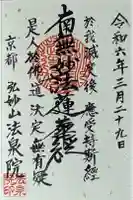 令和六年三月二十九日
於我滅度後 應受持斯經
南無妙法蓮華経
是人於佛道 決定無有疑
京都 弘妙山法泉院